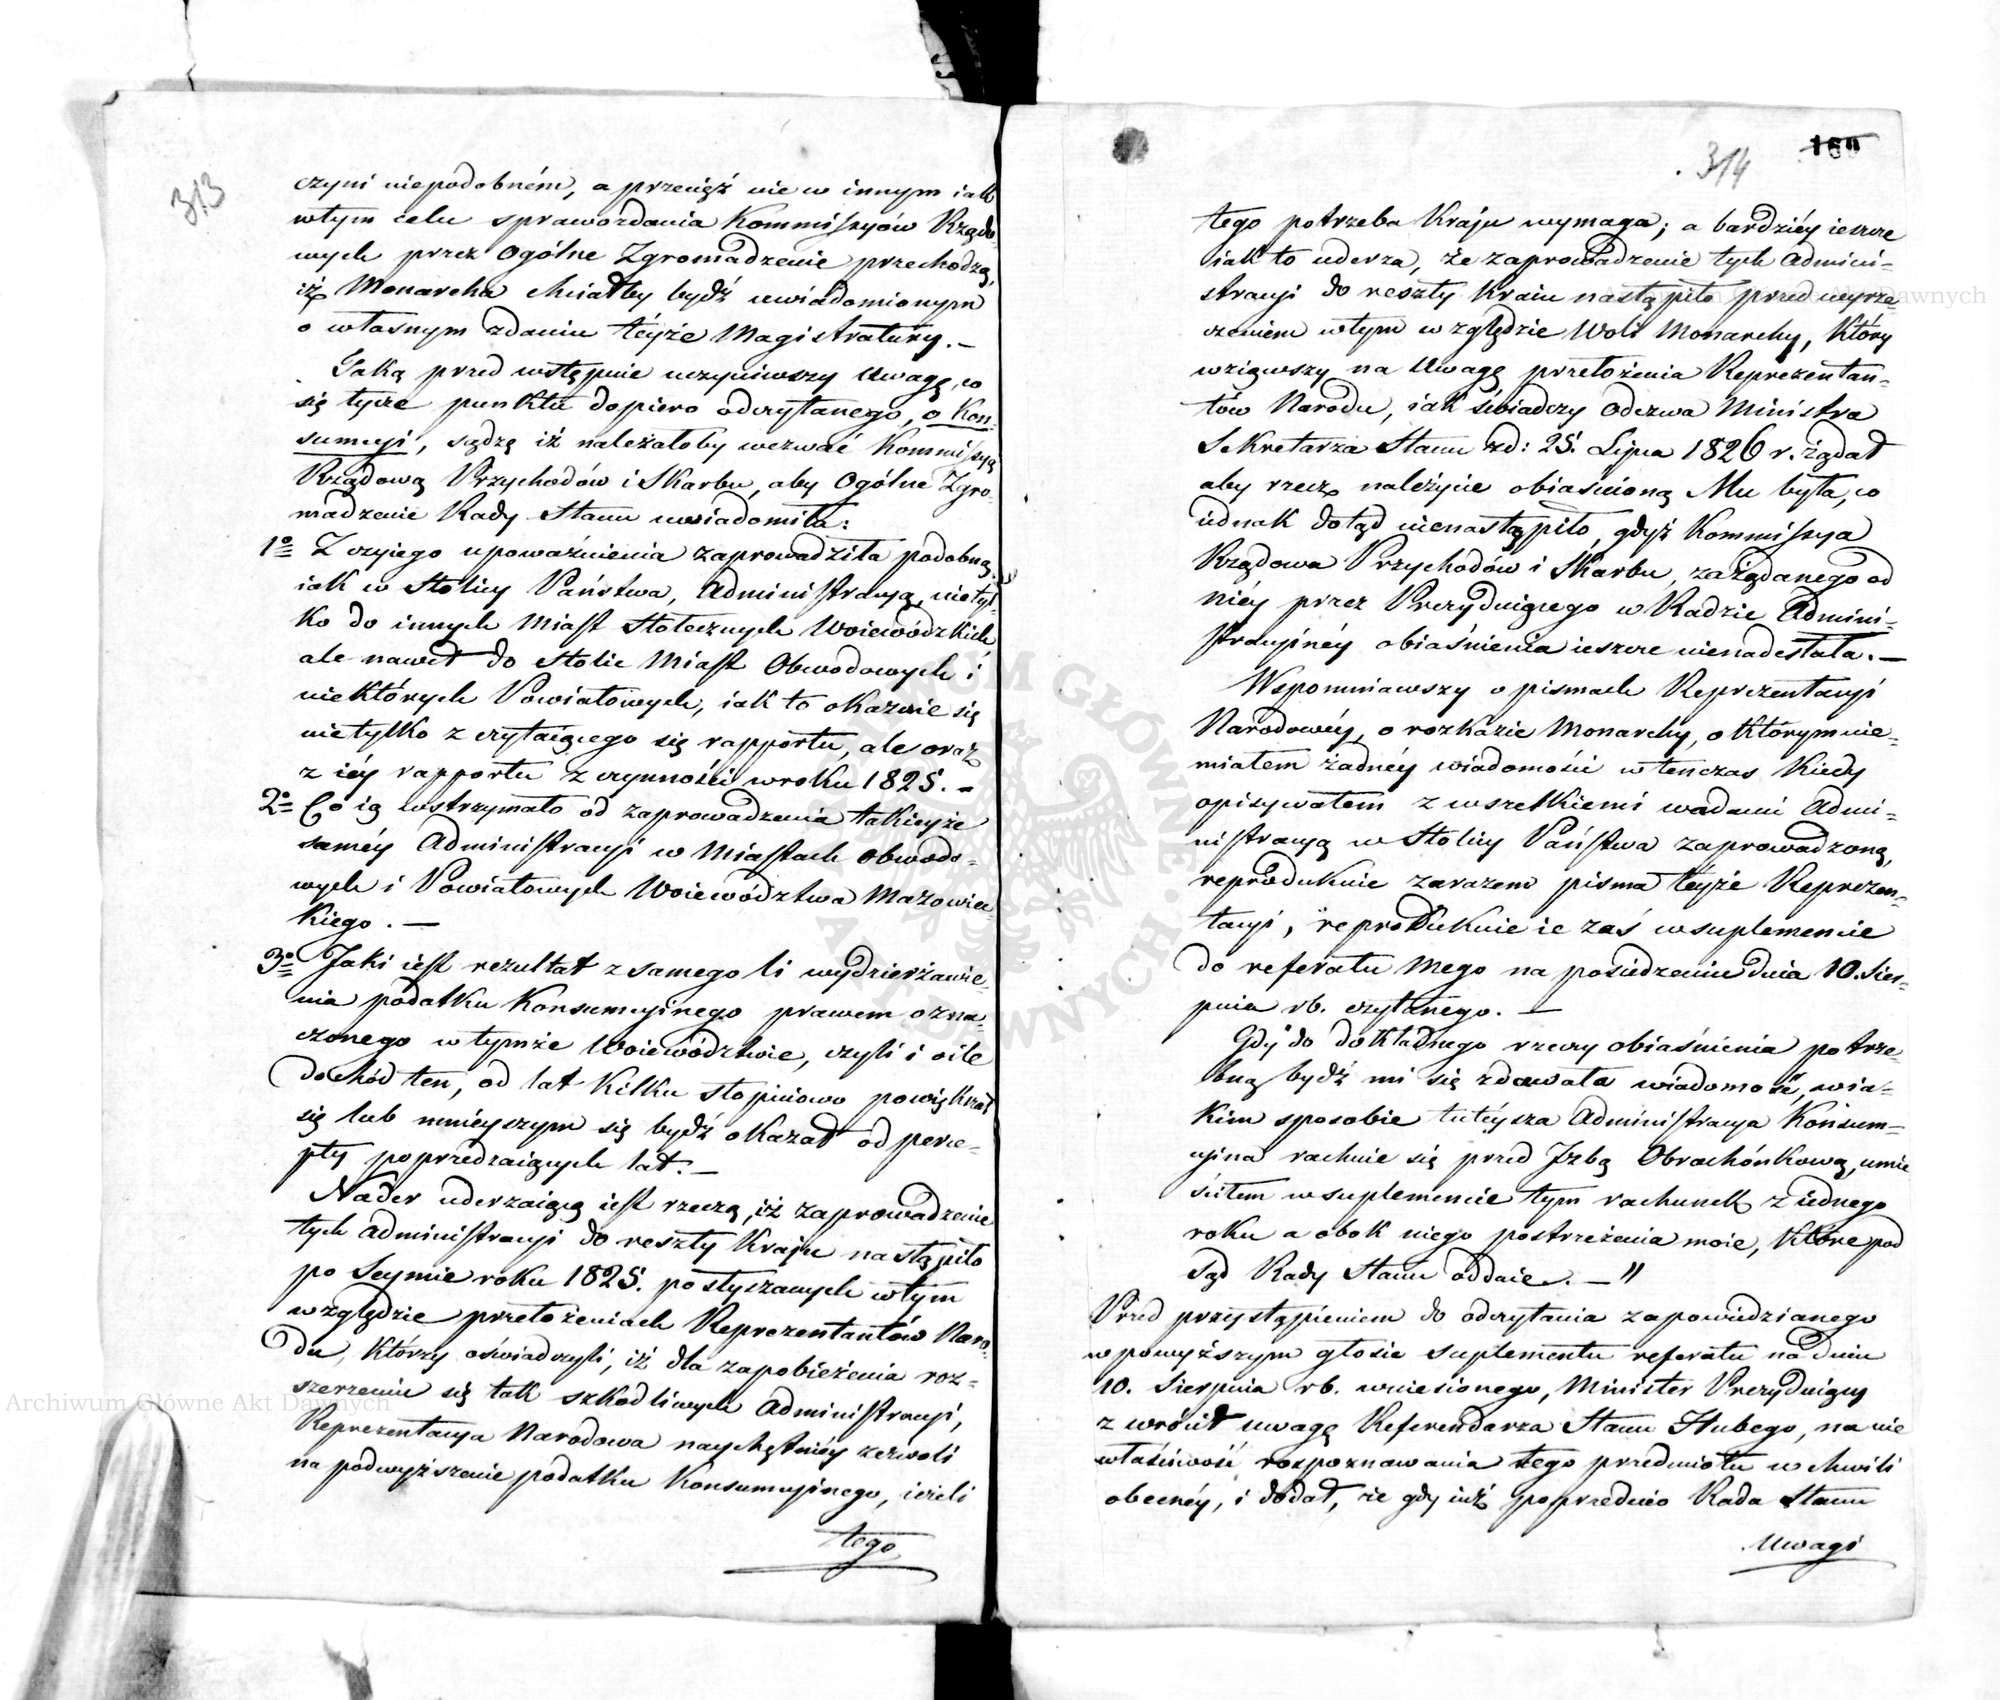 313
czyni niepodobném, a przecięż nie w innym iak
wtym celu sprawozdania Kommissyów Rządo-
wych przez Ogólne Zgromadzenie przechodzą,
iż Monarcha chciałby bydź uwiadomionym
o własnym zdaniu téyże Magistratury. —
Taką przed wstępnie uczyniwszy Uwagę, co
się tycze punktu dopiero odczytanego, o Kon-
sumcyi, sądzę iż należałoby wezwać Kommissyą
Rządową Przychodów i Skarbu, aby Ogólne Zgro-
madzenie Rady Stanu uwiadomiła:
1o Z czyiego upoważnienia zaprowadziła podobną
iak w Stolicy Państwa, Administracyą, nietyl-
ko do innych Miast Stołecznych Woiewódzkich
ale nawet do Stolic Miast Obwodowych i
niektórych Powiatowych, iak to okazuie się
nietylko z czytaiącego się rapportu, ale oraz
z iéy rapportu z czynności wroku 1825. —
2o Co ią wstrzymało od zaprowadzenia takieyże
saméy Administracyi w Miastach Obwodo-
wych i Powiatowych Woiewództwa Mazowiec
kiego. —
3o Jaki iest rezultat z samego li wydzierżawie-
nia podatku Konsumcyinego prawem ozna-
czonego w tymże Woiewództwie, czyli i oile
dochód ten, od lat kilku stopniowo powiększał
się lub mnieyszym się bydź okazał od perce-
pty poprzedzaiących lat. —
Nader uderzaiącą iest rzeczą, iż zaprowadzenie
tych Administracyi do reszty Kraju nastąpiło
po Seymie roku 1825. po słyszanych wtym
względzie przełożeniach Reprezentantów Naro-
du, którzy oświadczyli, iż dla zapobieżenia roz-
szerzeniu się tak szkodliwych Administracyi,
Reprezentacya Narodowa naychętniéy zezwoli
na podwyższenie podatku Konsumcyinego, ieżeli
tego
314
160
tego potrzeba Kraju wymaga; a bardziéy ieszcze
iak to uderza, że zaprowadzenie tych Admini-
stracyi do reszty Kraiu nastąpiło przed wyrze-
czeniem wtym względzie Woli Monarchy, Który
wziąwszy na Uwagę przełożenia Reprezentan-
tów Narodu, iak świadczy Odezwa Ministra
Sekretarza Stanu zd: 25. Lipca 1826 r. żądał
aby rzecz należycie obiaśnioną Mu była, co
iednak dotąd nienastąpiło, gdyż Kommissya
Rządowa Przychodów i Skarbu, zażądanego od
niéy przez Prezyduiącego w Radzie Admini-
stracyinéy obiaśnienia ieszcze nienadesłała. —
Wspomniawszy o pismach Reprezentacyi
Narodowéy, o rozkazie Monarchy, o którym nie-
miałem żadnéy wiadomości wtenczas kiedy
opisywałem z wszelkiemi wadami Admi-
nistracyą w Stolicy Państwa zaprowadzoną,
reprodukuie zarazem pisma téyże Reprezen-
tacyi, reprodukuie ie zaś w suplemencie
do referatu Mego na posiedzeniu dnia 10. Sier-
pnia rb. czytanego. —
Gdy do dokładnego rzeczy obiaśnienia potrze-
bną bydź mi się zdawała wiadomość, wia-
kim sposobie tutéysza Administracya Konsum-
cyina rachuie się przed Izbą Obrachónkową, umie
ściłem w suplemencie tym rachunek z iednego
roku a obok niego postrzeżenia moie, które pod
Sąd Rady Stanu oddaie. — "
Przed przystąpieniem do odczytania zapowiedzianego
w powyższym głosie suplementu referatu na dniu
10. Sierpnia rb. wniesionego, Minister Prezyduiący
zwrócił uwagę Referendarza Stanu Hubego, na nie
właściwość rozpoznawania tego przedmiotu w chwili
obecnéy, i dodał, że gdy iuż poprzednio Rada Stanu
Uwagi
Archiwum Główne Akt Dawnych
Archiwum Główne Akt Dawnych
ARCHIWUM GŁÓWNE AKT DAWNYCH